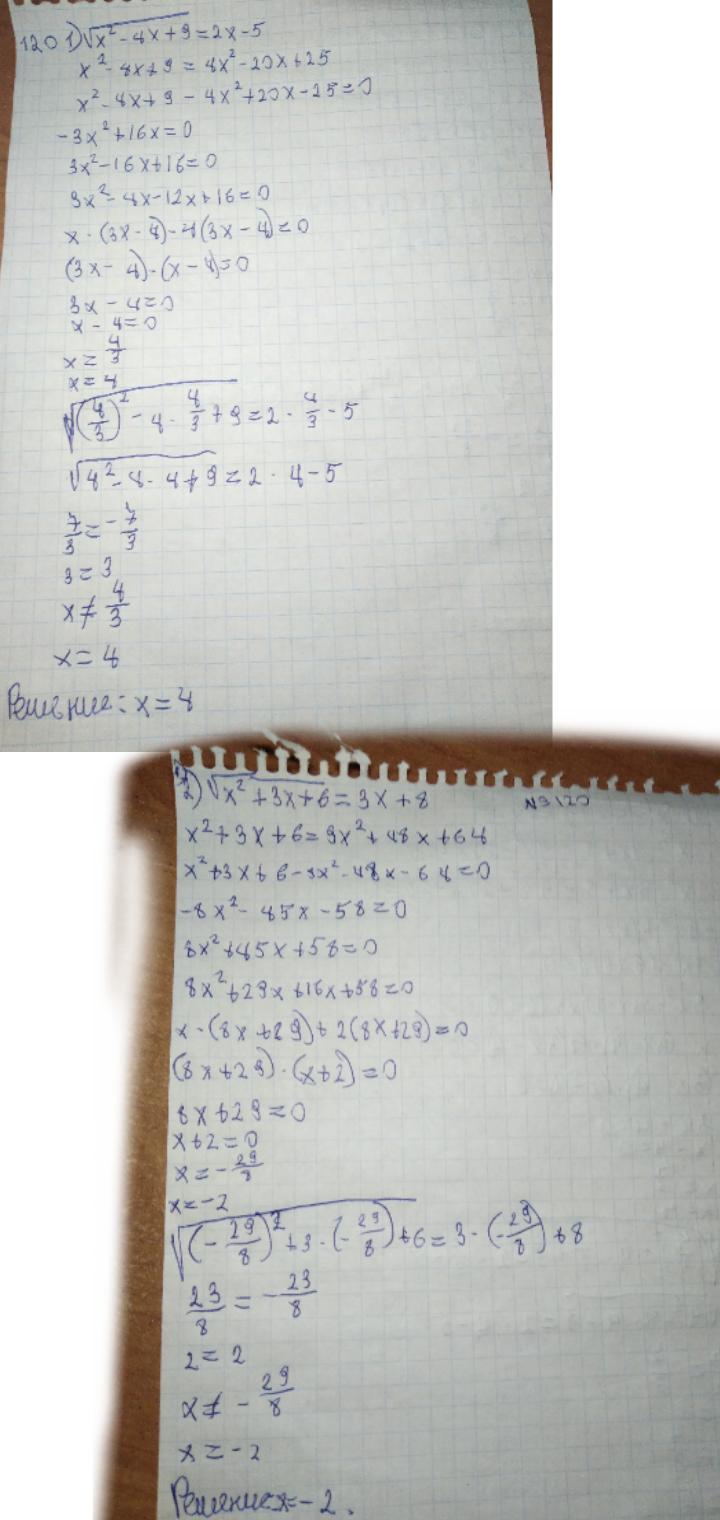 120 1) √x² - 4x + 9 = 2x - 5
x² - 4x + 9 = 4x² - 20x + 25
x² - 4x + 9 - 4x² + 20x - 25 = 0
-3x² + 16x = 0
3x² - 16x + 16 = 0
3x² - 4x - 12x + 16 = 0
x · (3x - 4) - 4(3x - 4) = 0
(3x - 4) · (x - 4) = 0
3x - 4 = 0
x - 4 = 0
x = 4/3
x = 4
√(4/3)² - 4 · 4/3 + 9 = 2 · 4/3 - 5
√4² - 4 · 4 + 9 = 2 · 4 - 5
7/3 = -7/3
3 = 3
x ≠ 4/3
x = 4
Решение: x = 4
2) √x² + 3x + 6 = 3x + 8 №120
x² + 3x + 6 = 9x² + 48x + 64
x² + 3x + 6 - 9x² - 48x - 64 = 0
-8x² - 45x - 58 = 0
8x² + 45x + 58 = 0
8x² + 29x + 16x + 58 = 0
x · (8x + 29) + 2(8x + 29) = 0
(8x + 29) · (x + 2) = 0
8x + 29 = 0
x + 2 = 0
x = -29/8
x = -2
√(-29/8)² + 3 · (-29/8) + 6 = 3 · (-29/8) + 8
23/8 = -23/8
2 = 2
x ≠ -29/8
x = -2
Решение x = -2.